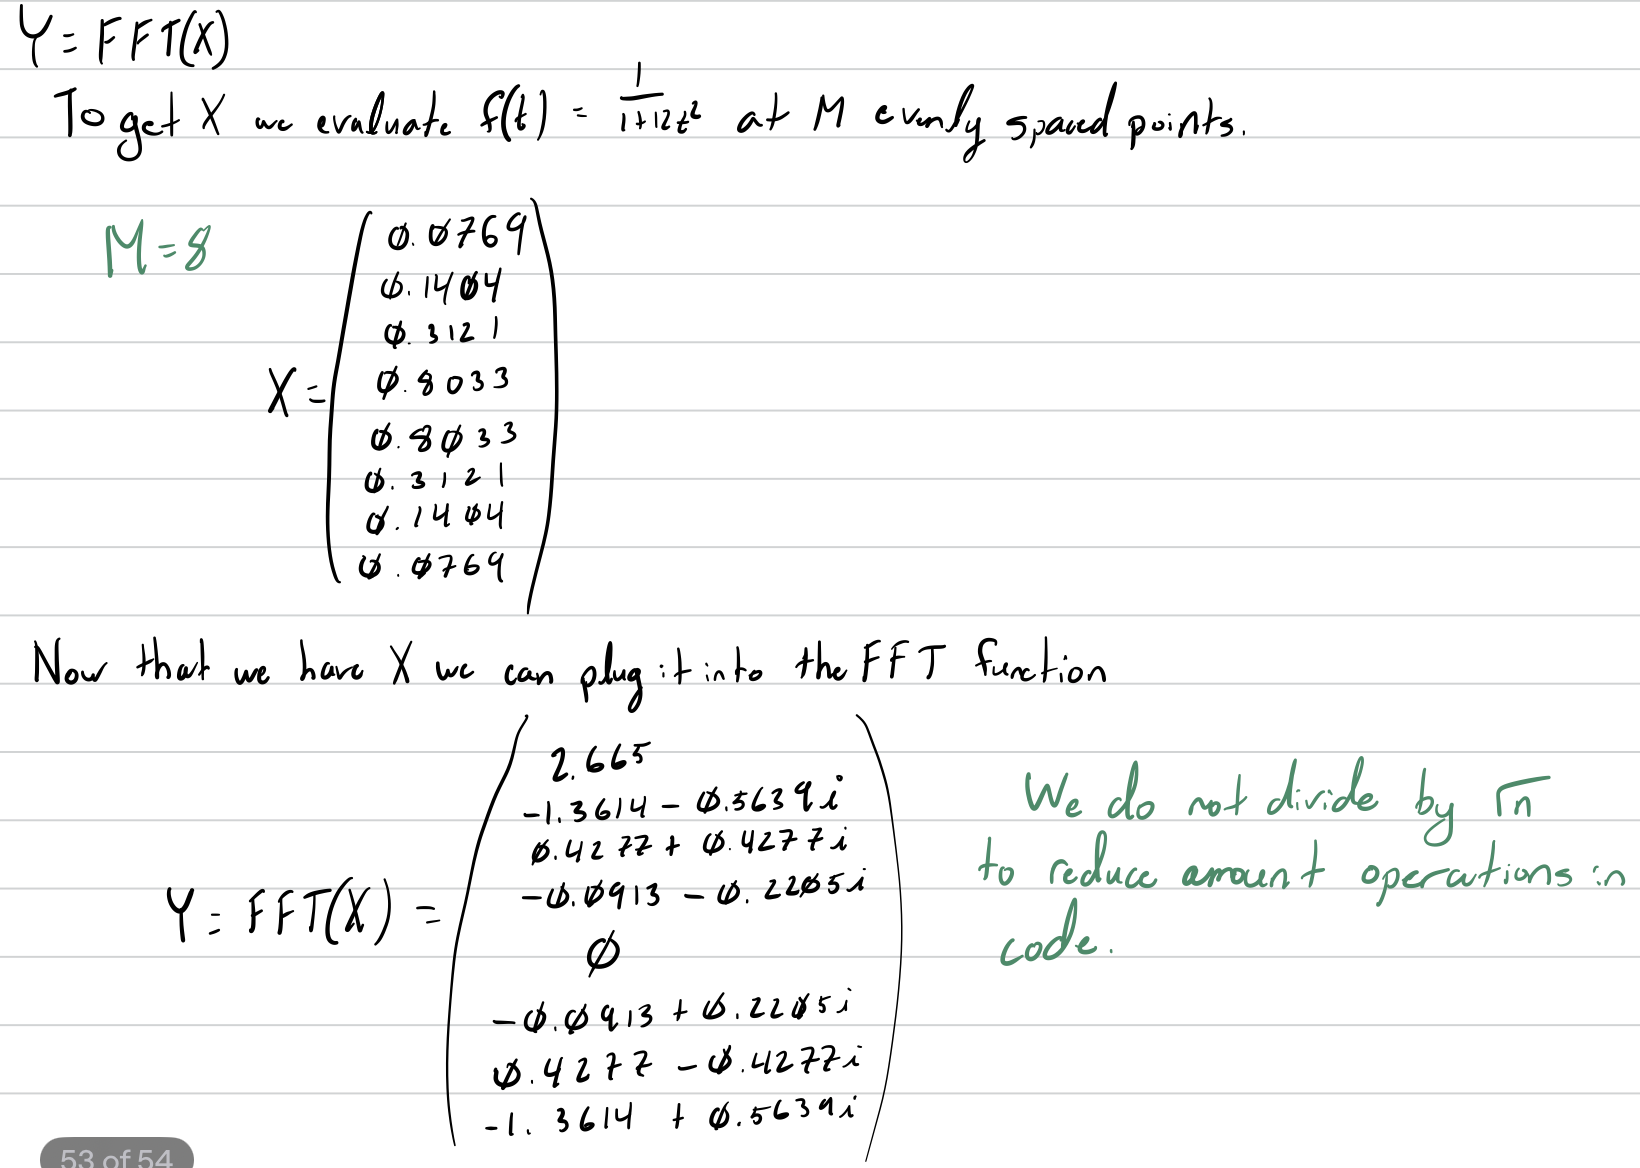 Y = FFT(X)
To get X we evaluate f(t) = 1/(1+12t²) at M evenly spaced points.
M=8
X =
0.0769
0.1404
0.3121
0.8033
0.8033
0.3121
0.1404
0.0769
Now that we have X we can plug it into the FFT function
Y = FFT(X) =
2.665
-1.3614 - 0.5639i
0.4277 + 0.4277i
-0.0913 - 0.2205i
0
-0.0913 + 0.2205i
0.4277 - 0.4277i
-1.3614 + 0.5639i
We do not divide by √n
to reduce amount operations in
code.
53 of 54